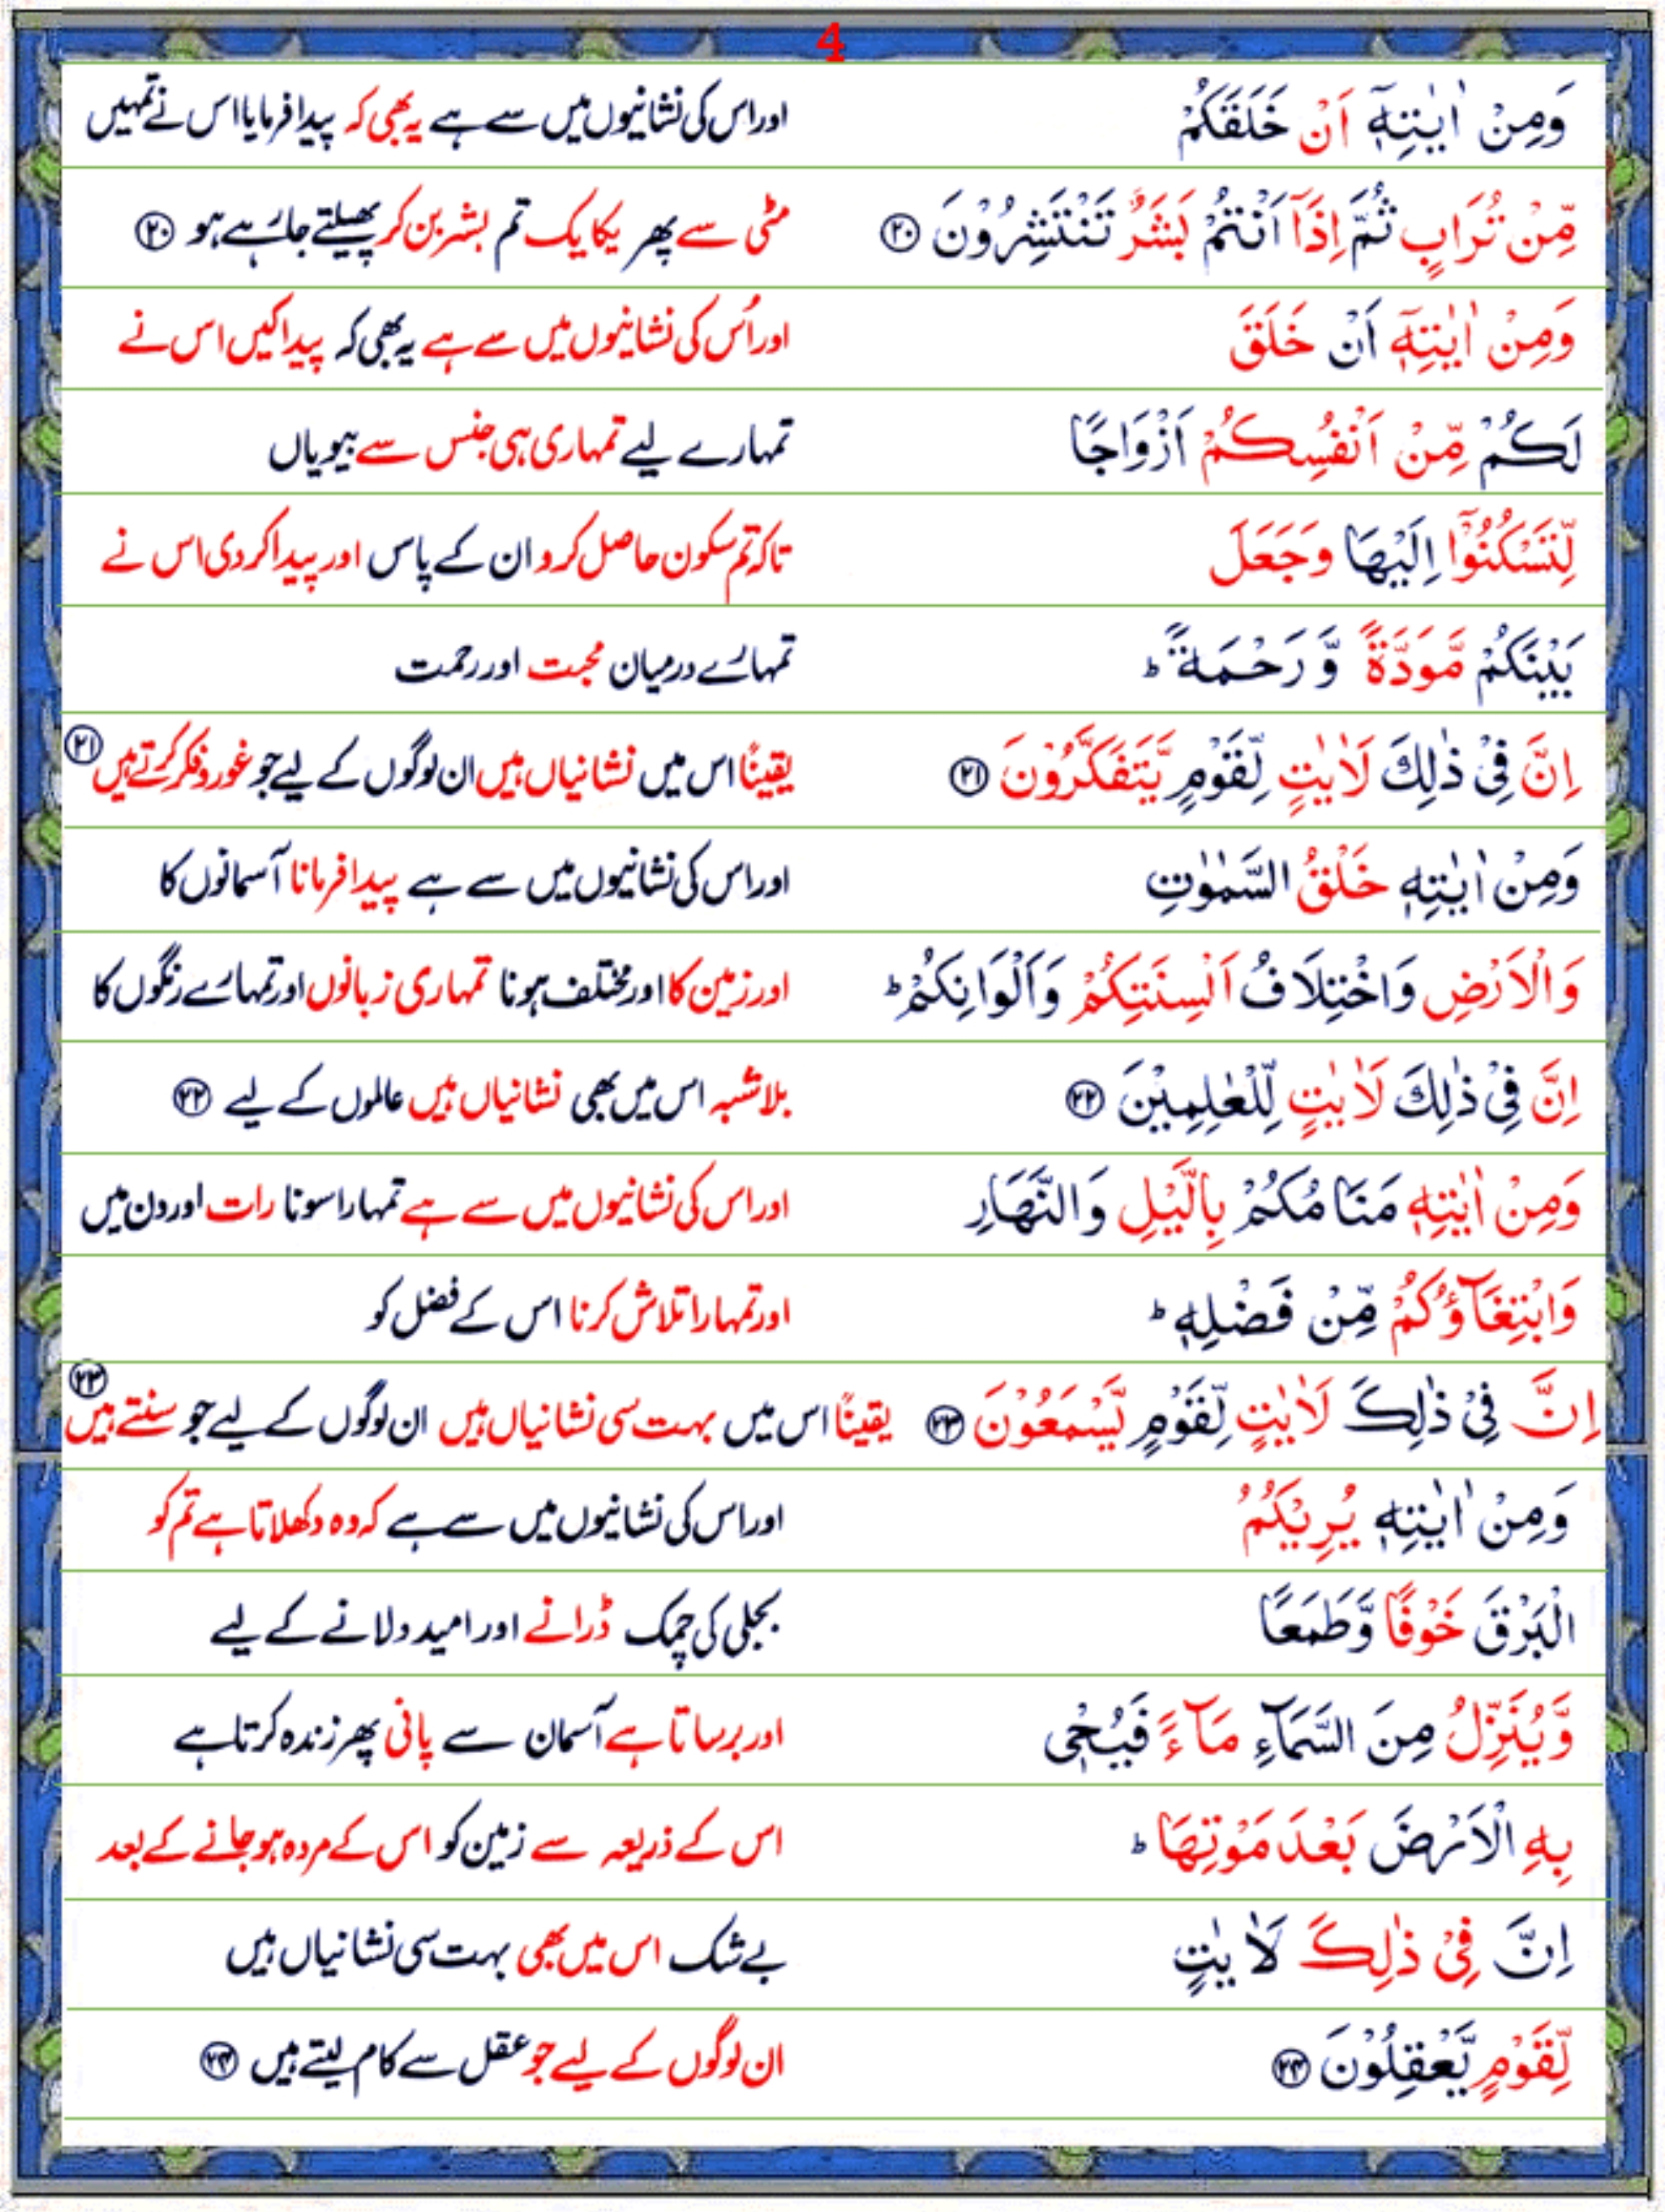 4
وَمِنْ اٰيٰتِهٖٓ اَنْ خَلَقَكُمْ اور اس کی نشانیوں میں سے ہے یہ بھی کہ پیدا فرمایا اس نے تمہیں
مِّنْ تُرَابٍ ثُمَّ اِذَآ اَنْتُمْ بَشَرٌ تَنْتَشِرُوْنَ ۲۰ مٹی سے پھر یکایک تم بشر بن کر پھیلتے جا رہے ہو ۲۰
وَمِنْ اٰيٰتِهٖٓ اَنْ خَلَقَ اور اُس کی نشانیوں میں سے ہے یہ بھی کہ پیدا کیں اس نے
لَكُمْ مِّنْ اَنْفُسِكُمْ اَزْوَاجًا تمہارے لیے تمہاری ہی جنس سے بیویاں
لِّتَسْكُنُوْٓا اِلَيْهَا وَجَعَلَ تاکہ تم سکون حاصل کرو ان کے پاس اور پیدا کر دی اس نے
بَيْنَكُمْ مَّوَدَّةً وَّرَحْمَةً ؕ تمہارے درمیان محبت اور رحمت
اِنَّ فِيْ ذٰلِكَ لَاٰيٰتٍ لِّقَوْمٍ يَّتَفَكَّرُوْنَ ۲۱ یقیناً اس میں نشانیاں ہیں ان لوگوں کے لیے جو غور و فکر کرتے ہیں ۲۱
وَمِنْ اٰيٰتِهٖ خَلْقُ السَّمٰوٰتِ اور اس کی نشانیوں میں سے ہے پیدا فرمانا آسمانوں کا
وَالْاَرْضِ وَاخْتِلَافُ اَلْسِنَتِكُمْ وَاَلْوَانِكُمْ ؕ اور زمین کا اور مختلف ہونا تمہاری زبانوں اور تمہارے رنگوں کا
اِنَّ فِيْ ذٰلِكَ لَاٰيٰتٍ لِّلْعٰلِمِيْنَ ۲۲ بلاشبہ اس میں بھی نشانیاں ہیں عالموں کے لیے ۲۲
وَمِنْ اٰيٰتِهٖ مَنَامُكُمْ بِالَّيْلِ وَالنَّهَارِ اور اس کی نشانیوں میں سے ہے تمہارا سونا رات اور دن میں
وَابْتِغَآؤُكُمْ مِّنْ فَضْلِهٖ ؕ اور تمہارا تلاش کرنا اس کے فضل کو
اِنَّ فِيْ ذٰلِكَ لَاٰيٰتٍ لِّقَوْمٍ يَّسْمَعُوْنَ ۲۳ یقیناً اس میں بہت سی نشانیاں ہیں ان لوگوں کے لیے جو سنتے ہیں ۲۳
وَمِنْ اٰيٰتِهٖ يُرِيْكُمُ اور اس کی نشانیوں میں سے ہے کہ وہ دکھلاتا ہے تم کو
الْبَرْقَ خَوْفًا وَّطَمَعًا بجلی کی چمک ڈرانے اور امید دلانے کے لیے
وَّيُنَزِّلُ مِنَ السَّمَآءِ مَآءً فَيُحْيٖ اور برساتا ہے آسمان سے پانی پھر زندہ کرتا ہے
بِهِ الْاَرْضَ بَعْدَ مَوْتِهَا ؕ اس کے ذریعہ سے زمین کو اس کے مردہ ہو جانے کے بعد
اِنَّ فِيْ ذٰلِكَ لَاٰيٰتٍ بے شک اس میں بھی بہت سی نشانیاں ہیں
لِّقَوْمٍ يَّعْقِلُوْنَ ۲۴ ان لوگوں کے لیے جو عقل سے کام لیتے ہیں ۲۴